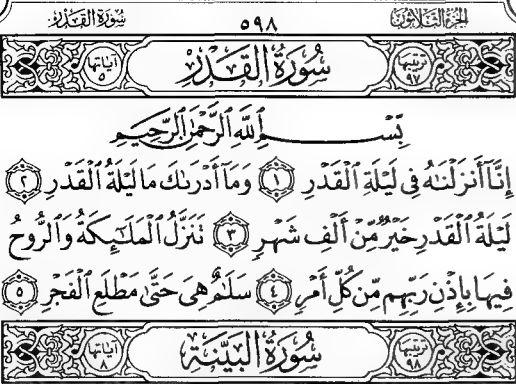 سُورَةُ القَدْرِ ٥٩٨ الجُزْءُ الثَّلَاثُونَ
ترتيبها ٩٧ سُورَةُ القَدْرِ آياتها ٥
بِسْمِ ٱللَّهِ ٱلرَّحْمَٰنِ ٱلرَّحِيمِ
إِنَّآ أَنزَلْنَٰهُ فِى لَيْلَةِ ٱلْقَدْرِ ١ وَمَآ أَدْرَىٰكَ مَا لَيْلَةُ ٱلْقَدْرِ ٢
لَيْلَةُ ٱلْقَدْرِ خَيْرٌ مِّنْ أَلْفِ شَهْرٍ ٣ تَنَزَّلُ ٱلْمَلَٰٓئِكَةُ وَٱلرُّوحُ
فِيهَا بِإِذْنِ رَبِّهِم مِّن كُلِّ أَمْرٍ ٤ سَلَٰمٌ هِىَ حَتَّىٰ مَطْلَعِ ٱلْفَجْرِ ٥
ترتيبها ٩٨ سُورَةُ البَيِّنَةِ آياتها ٨